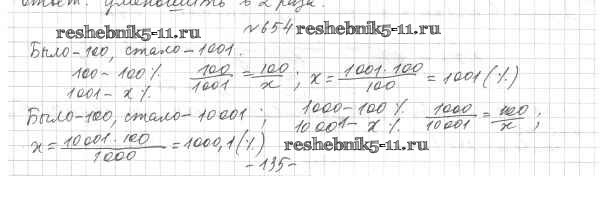 ответ: уменьшить в 2 раза.
№654
reshebnik5-11.ru reshebnik5-11.ru
Было-100, стало-1001.
100-100% 100/1001 = 100/x ; x = 1001·100/100 = 1001(%)
1001-x%
Было-100, стало-10001 ; 1000-100% 1000/10001 = 100/x ;
10001-x%
x = 10001·100/1000 = 1000,1(%) reshebnik5-11.ru
-135-